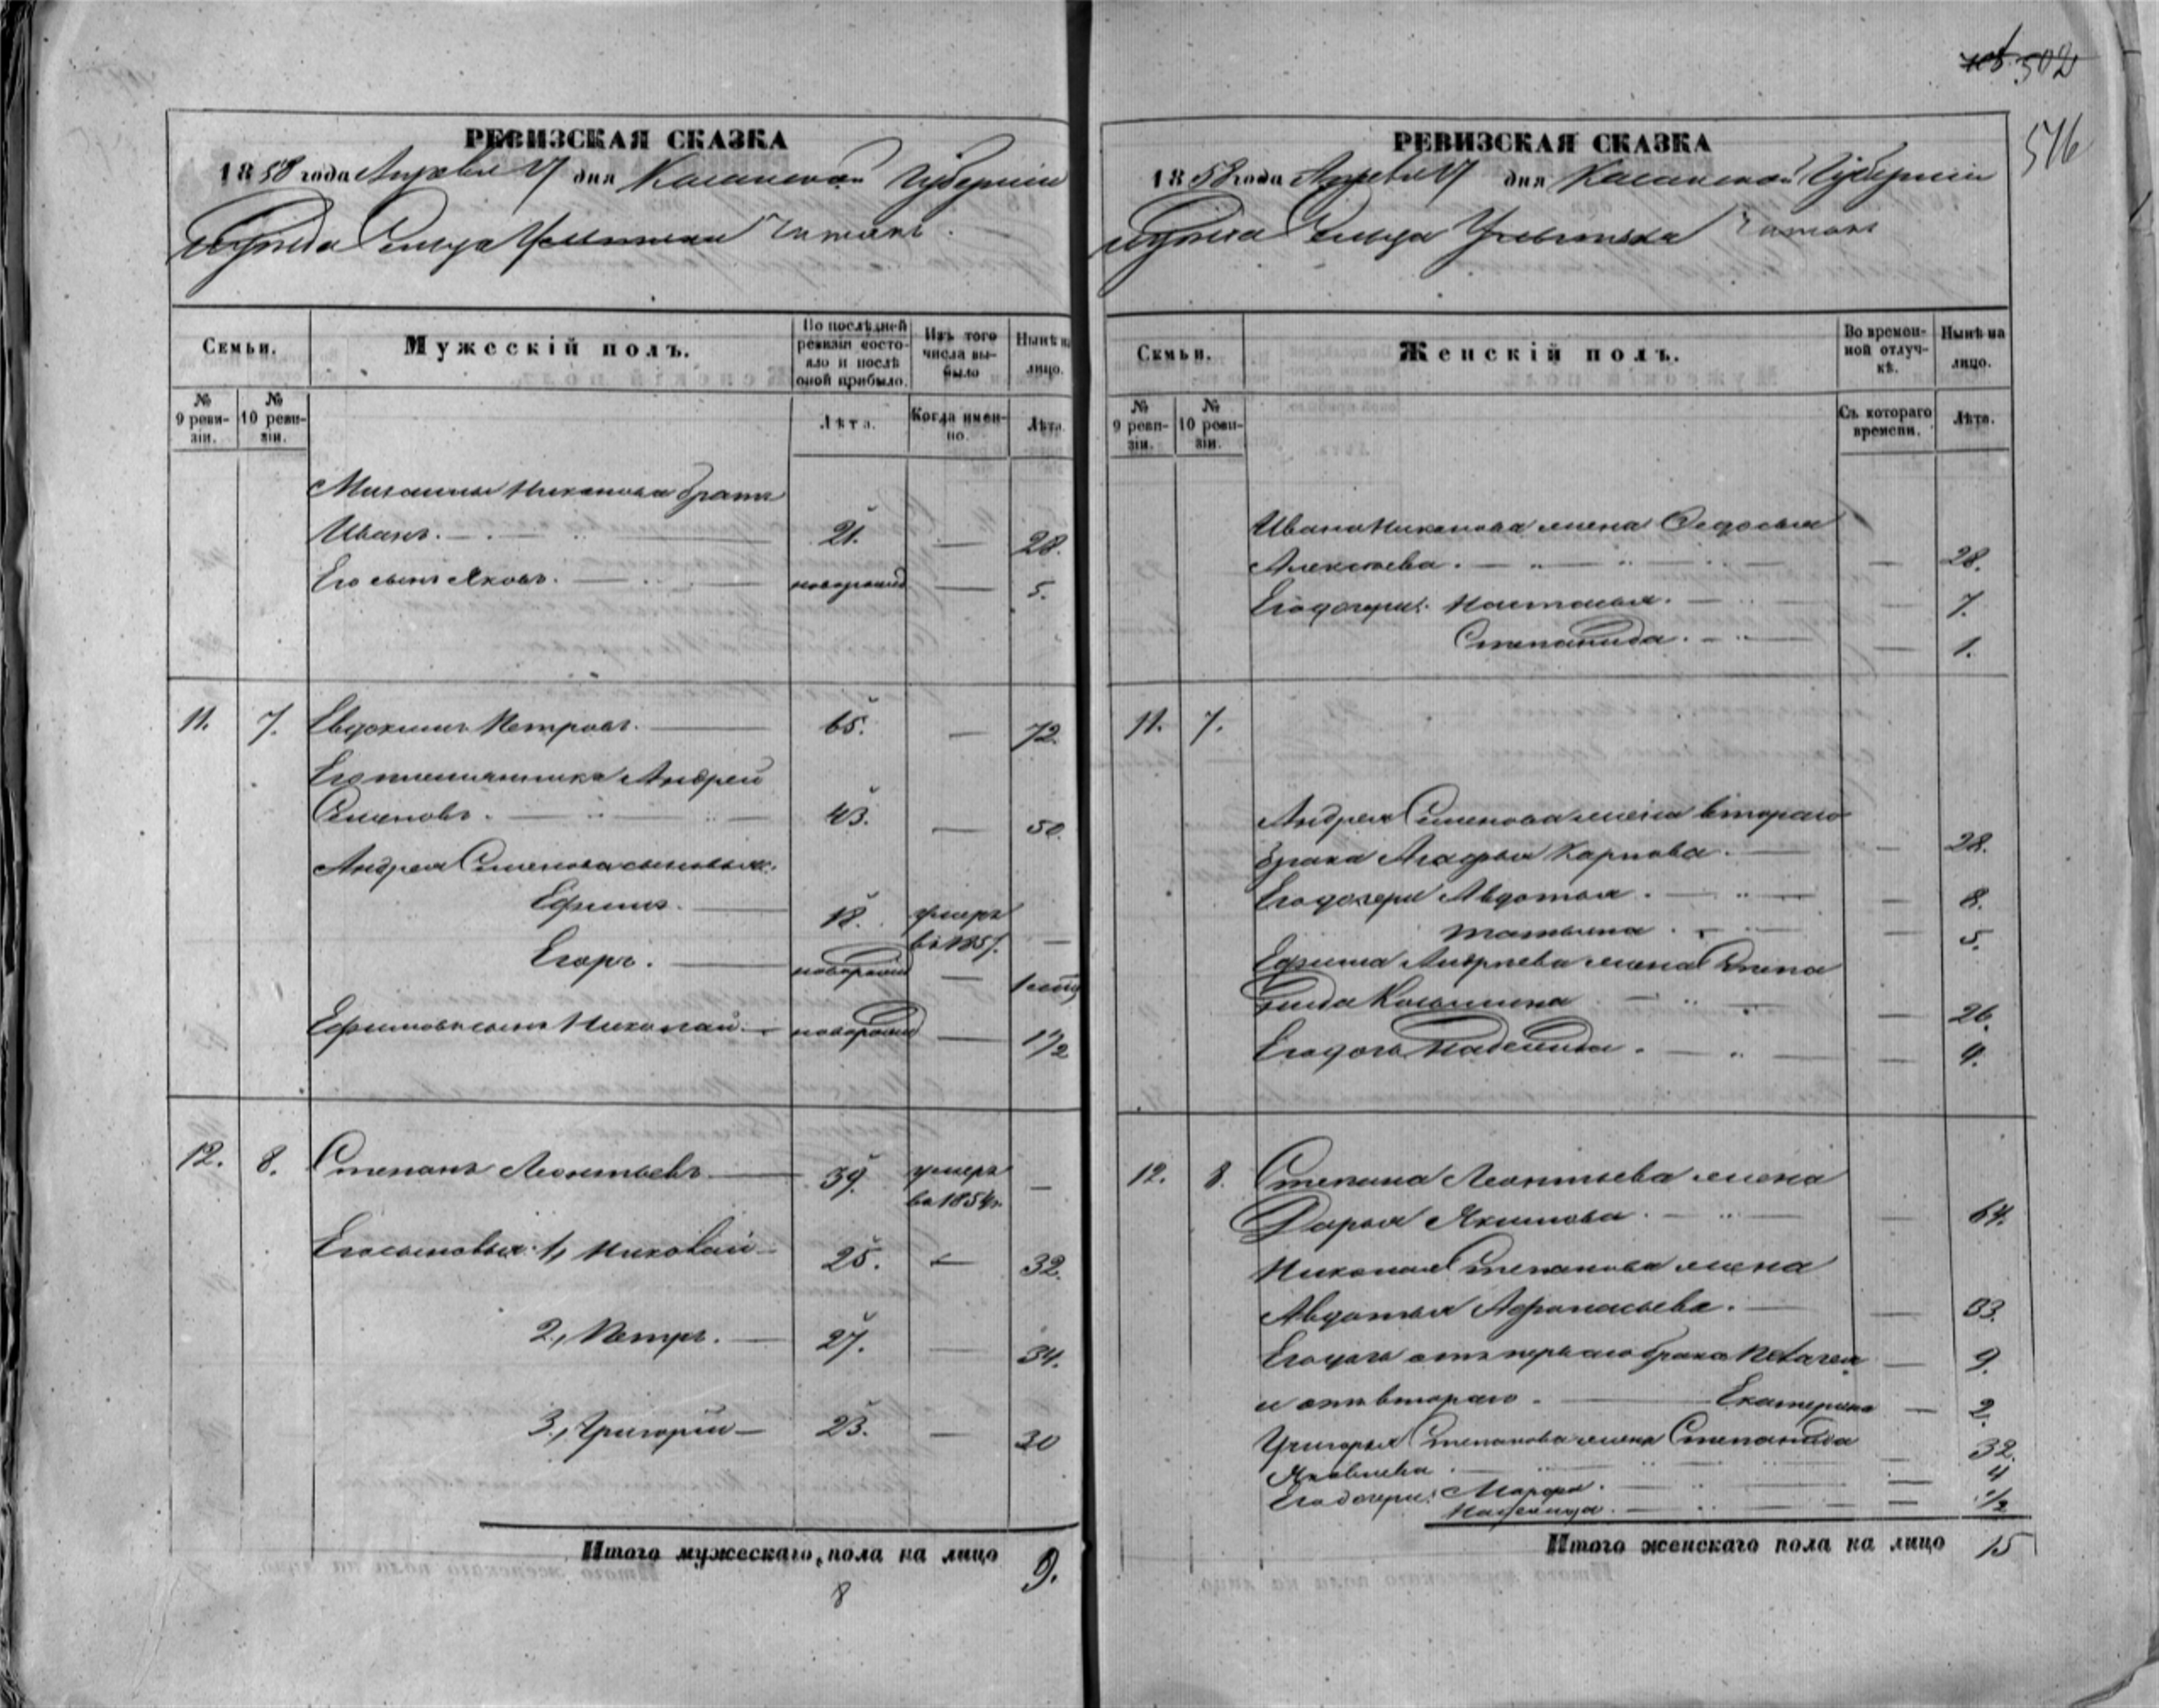 502
516
РЕВИЗСКАЯ СКАЗКА
1858 года Апреля 17 дня Казанской Губерніи
уезда Сельца
Семьи.
Мужескій полъ.
По послѣдней ревизіи состояло и послѣ оной прибыло.
Изъ того числа выбыло
Нынѣ на лицо.
№ 9 ревизіи.
№ 10 ревизіи.
Лѣта.
Когда именно.
Лѣта.
Никонова братъ
Иванъ. 21. — 28.
Его сынъ Яковъ. новорожд — 5.
11. 7. Евдокимъ Петровъ. 65. — 72.
Его племянникъ Андрей
Семеновъ. 43. — 50.
Андрея Семенова сыновья:
Ефимъ. 18. умеръ въ 1857. —
Егоръ. новорожд —
Ефимовъ сынъ Николай новорожд — 1 1/2
12. 8. Степанъ Леонтьевъ 39. умеръ въ 1854г. —
Его сыновья: 1, Николай 25. — 32.
2, Петръ. 27. — 34.
3, Григорій 23. — 30
Итого мужескаго пола на лицо 9.
8
РЕВИЗСКАЯ СКАЗКА
1858 года Апреля 17 дня Казанской Губерніи
уезда Сельца
Семьи.
Женскій полъ.
Во временной отлучкѣ.
Нынѣ на лицо.
№ 9 ревизіи.
№ 10 ревизіи.
Съ котораго времени.
Лѣта.
Ивана Никонова жена Федосья
Алексѣева. — 28.
Его дочери: Настасья. — 7.
Степанида. — 1.
11. 7.
Андрея Семенова жена втораго
брака Агафья Карпова. — 28.
Его дочери Авдотья. — 8.
Татьяна. — 5.
Ефима Андреева жена Степа
нида — 26.
Его дочь — 9.
12. 8. Степана Леонтьева жена
Дарья Якимова. — 64.
Николая Степанова жена
Авдотья Афонасьева. — 33.
Его дочь отъ перваго брака Пелагея — 9.
и отъ втораго. Екатерина — 2.
Григорья Степанова жена Степанида
Яковлева. — 32.
Его дочери: Марфа. — 4
— 1/2
Итого женскаго пола на лицо 15